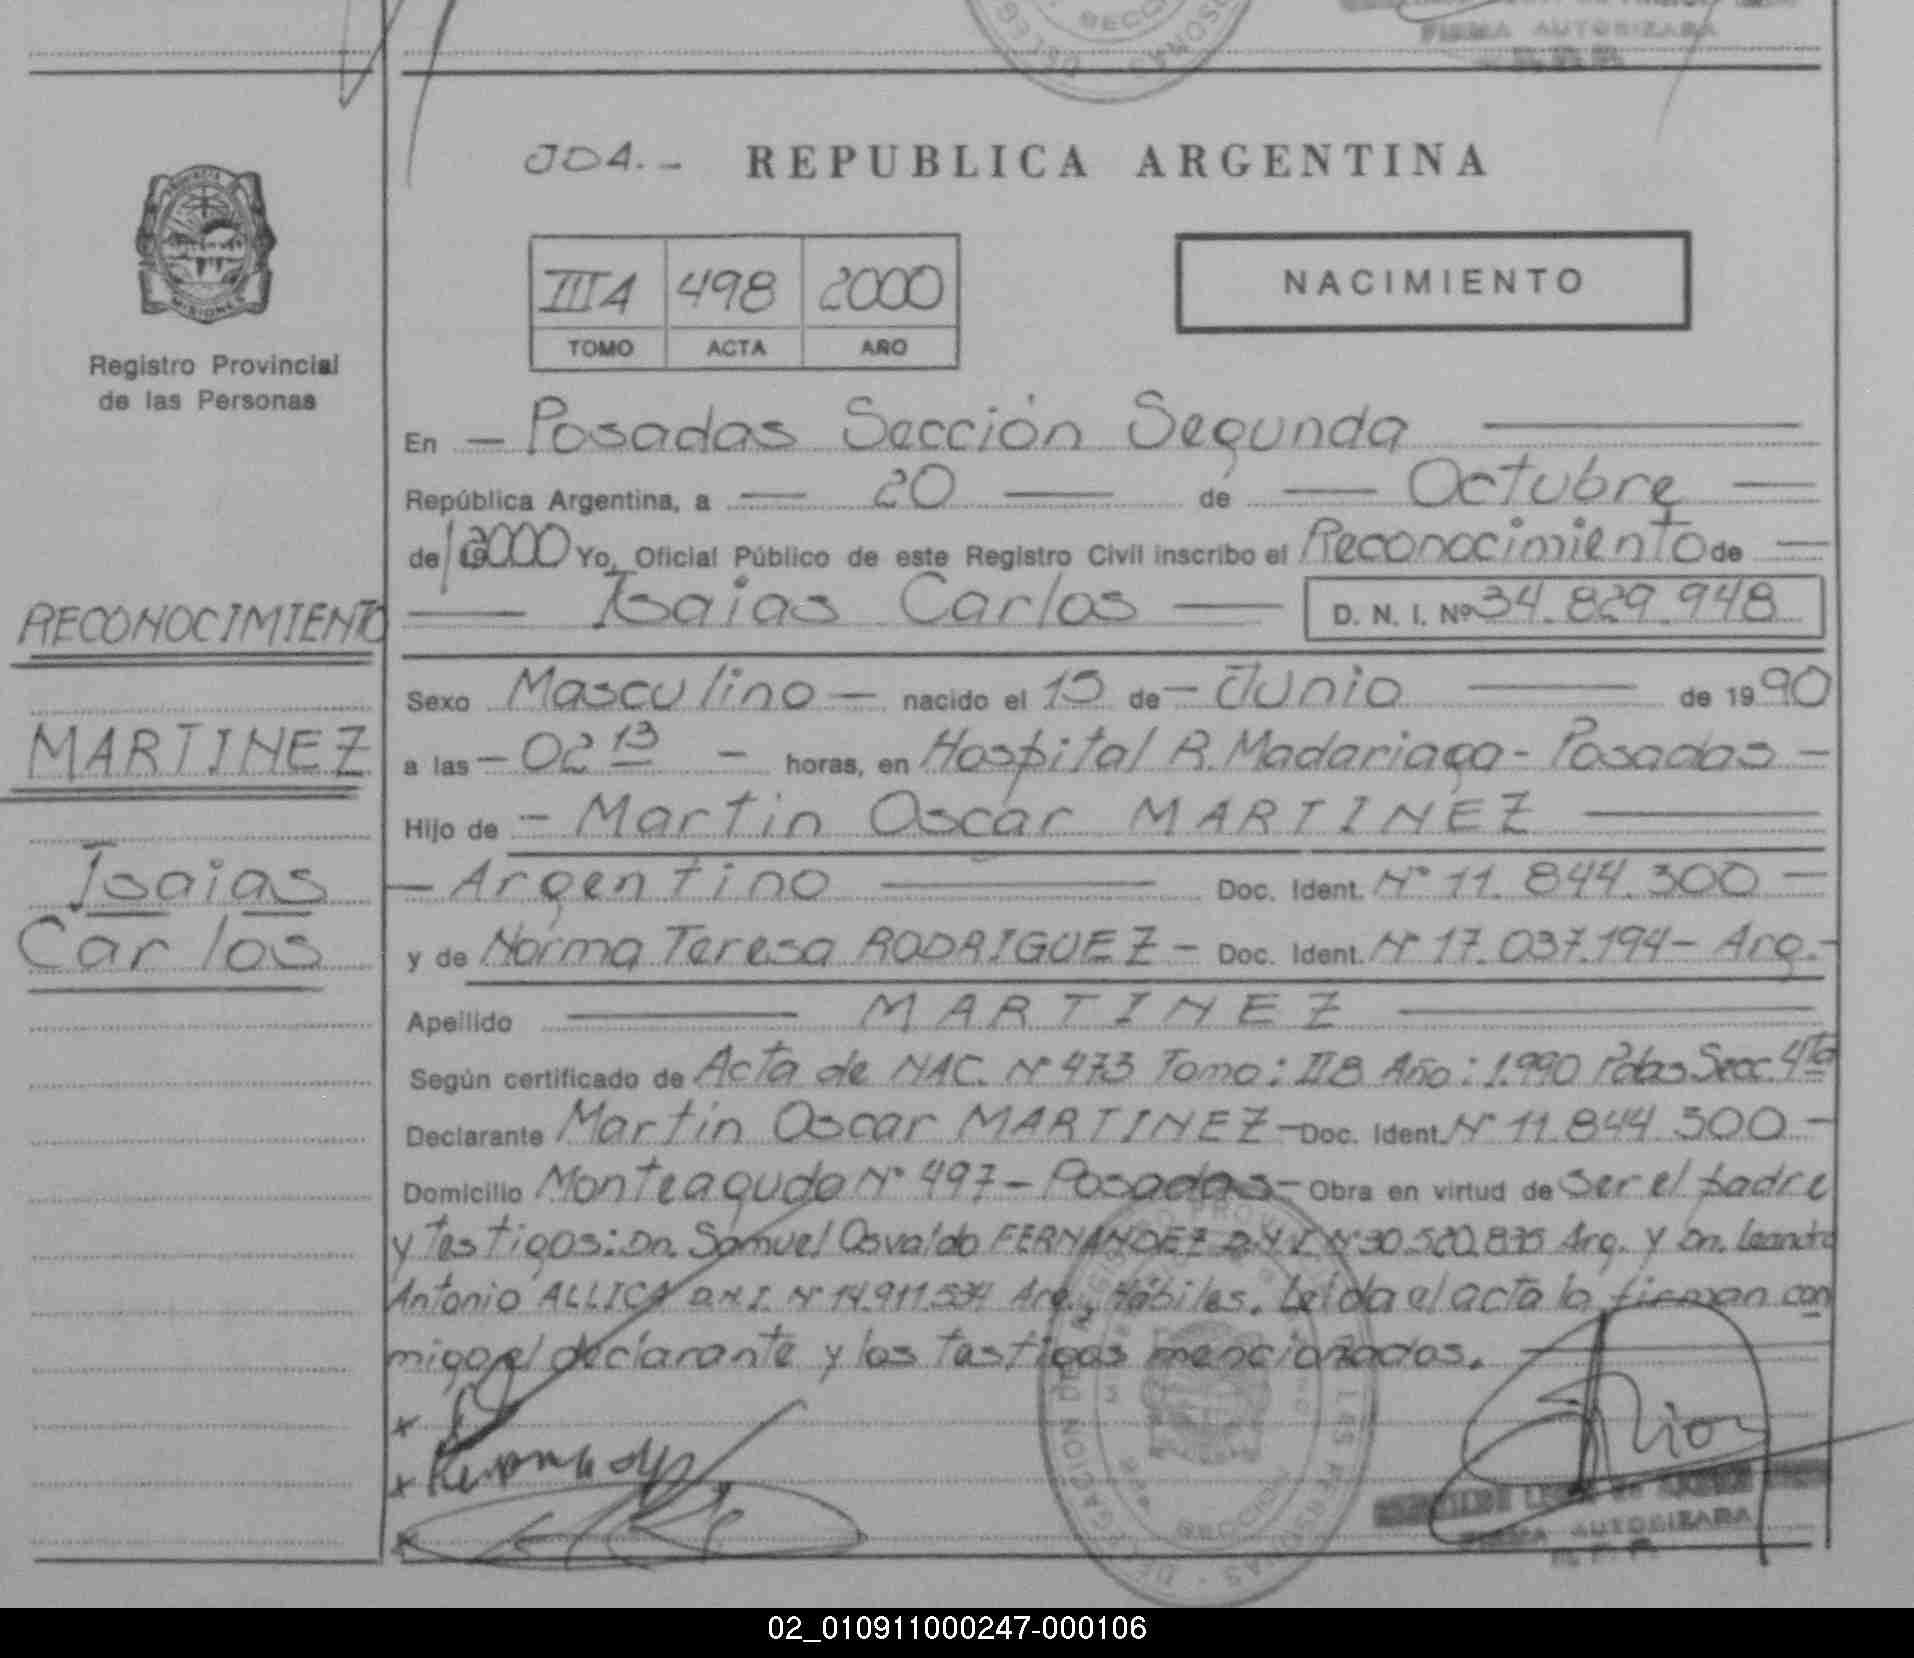 SECCI
DELEG
FIRMA AUTORIZADA
R.P.P.
104.- REPUBLICA ARGENTINA
PROVINCIA
MISIONES
III A 498 2000
TOMO ACTA AÑO
NACIMIENTO
Registro Provincial
de las Personas
En - Posadas Sección Segunda
República Argentina, a 20 de Octubre
de 2000 Yo, Oficial Público de este Registro Civil inscribo el Reconocimiento de
Isaias Carlos D. N. I. Nº 34.829.948
RECONOCIMIENTO
MARTINEZ
Isaias
Carlos
Sexo Masculino - nacido el 15 de - Junio de 1990
a las - 02 13 - horas, en Hospital R. Madariaga - Posadas -
Hijo de - Martin Oscar MARTINEZ
- Argentino Doc. Ident. Nº 11.844.300 -
y de Norma Teresa RODRIGUEZ - Doc. Ident. Nº 17.037.194 - Arg.-
Apellido MARTINEZ
Según certificado de Acta de NAC. Nº 473 Tomo: II B Año: 1.990 Pdas Secc. 4ta
Declarante Martin Oscar MARTINEZ - Doc. Ident. Nº 11.844.300 -
Domicilio Monteagudo Nº 497 - Posadas - Obra en virtud de Ser el padre
y testigos: Dn. Samuel Osvaldo FERNANDEZ D.N.I. Nº 30.520.835 Arg. y Dn. Leandro
Antonio ALLICA D.N.I. Nº 14.911.534 Arg., Hábiles. Leída el acta la firman con
migo el declarante y los testigos mencionados.
DELEGACION DE REGISTRO PROVINCIAL DE LAS PERSONAS
SECCION
FIRMA AUTORIZADA
R.P.P.
02_010911000247-000106